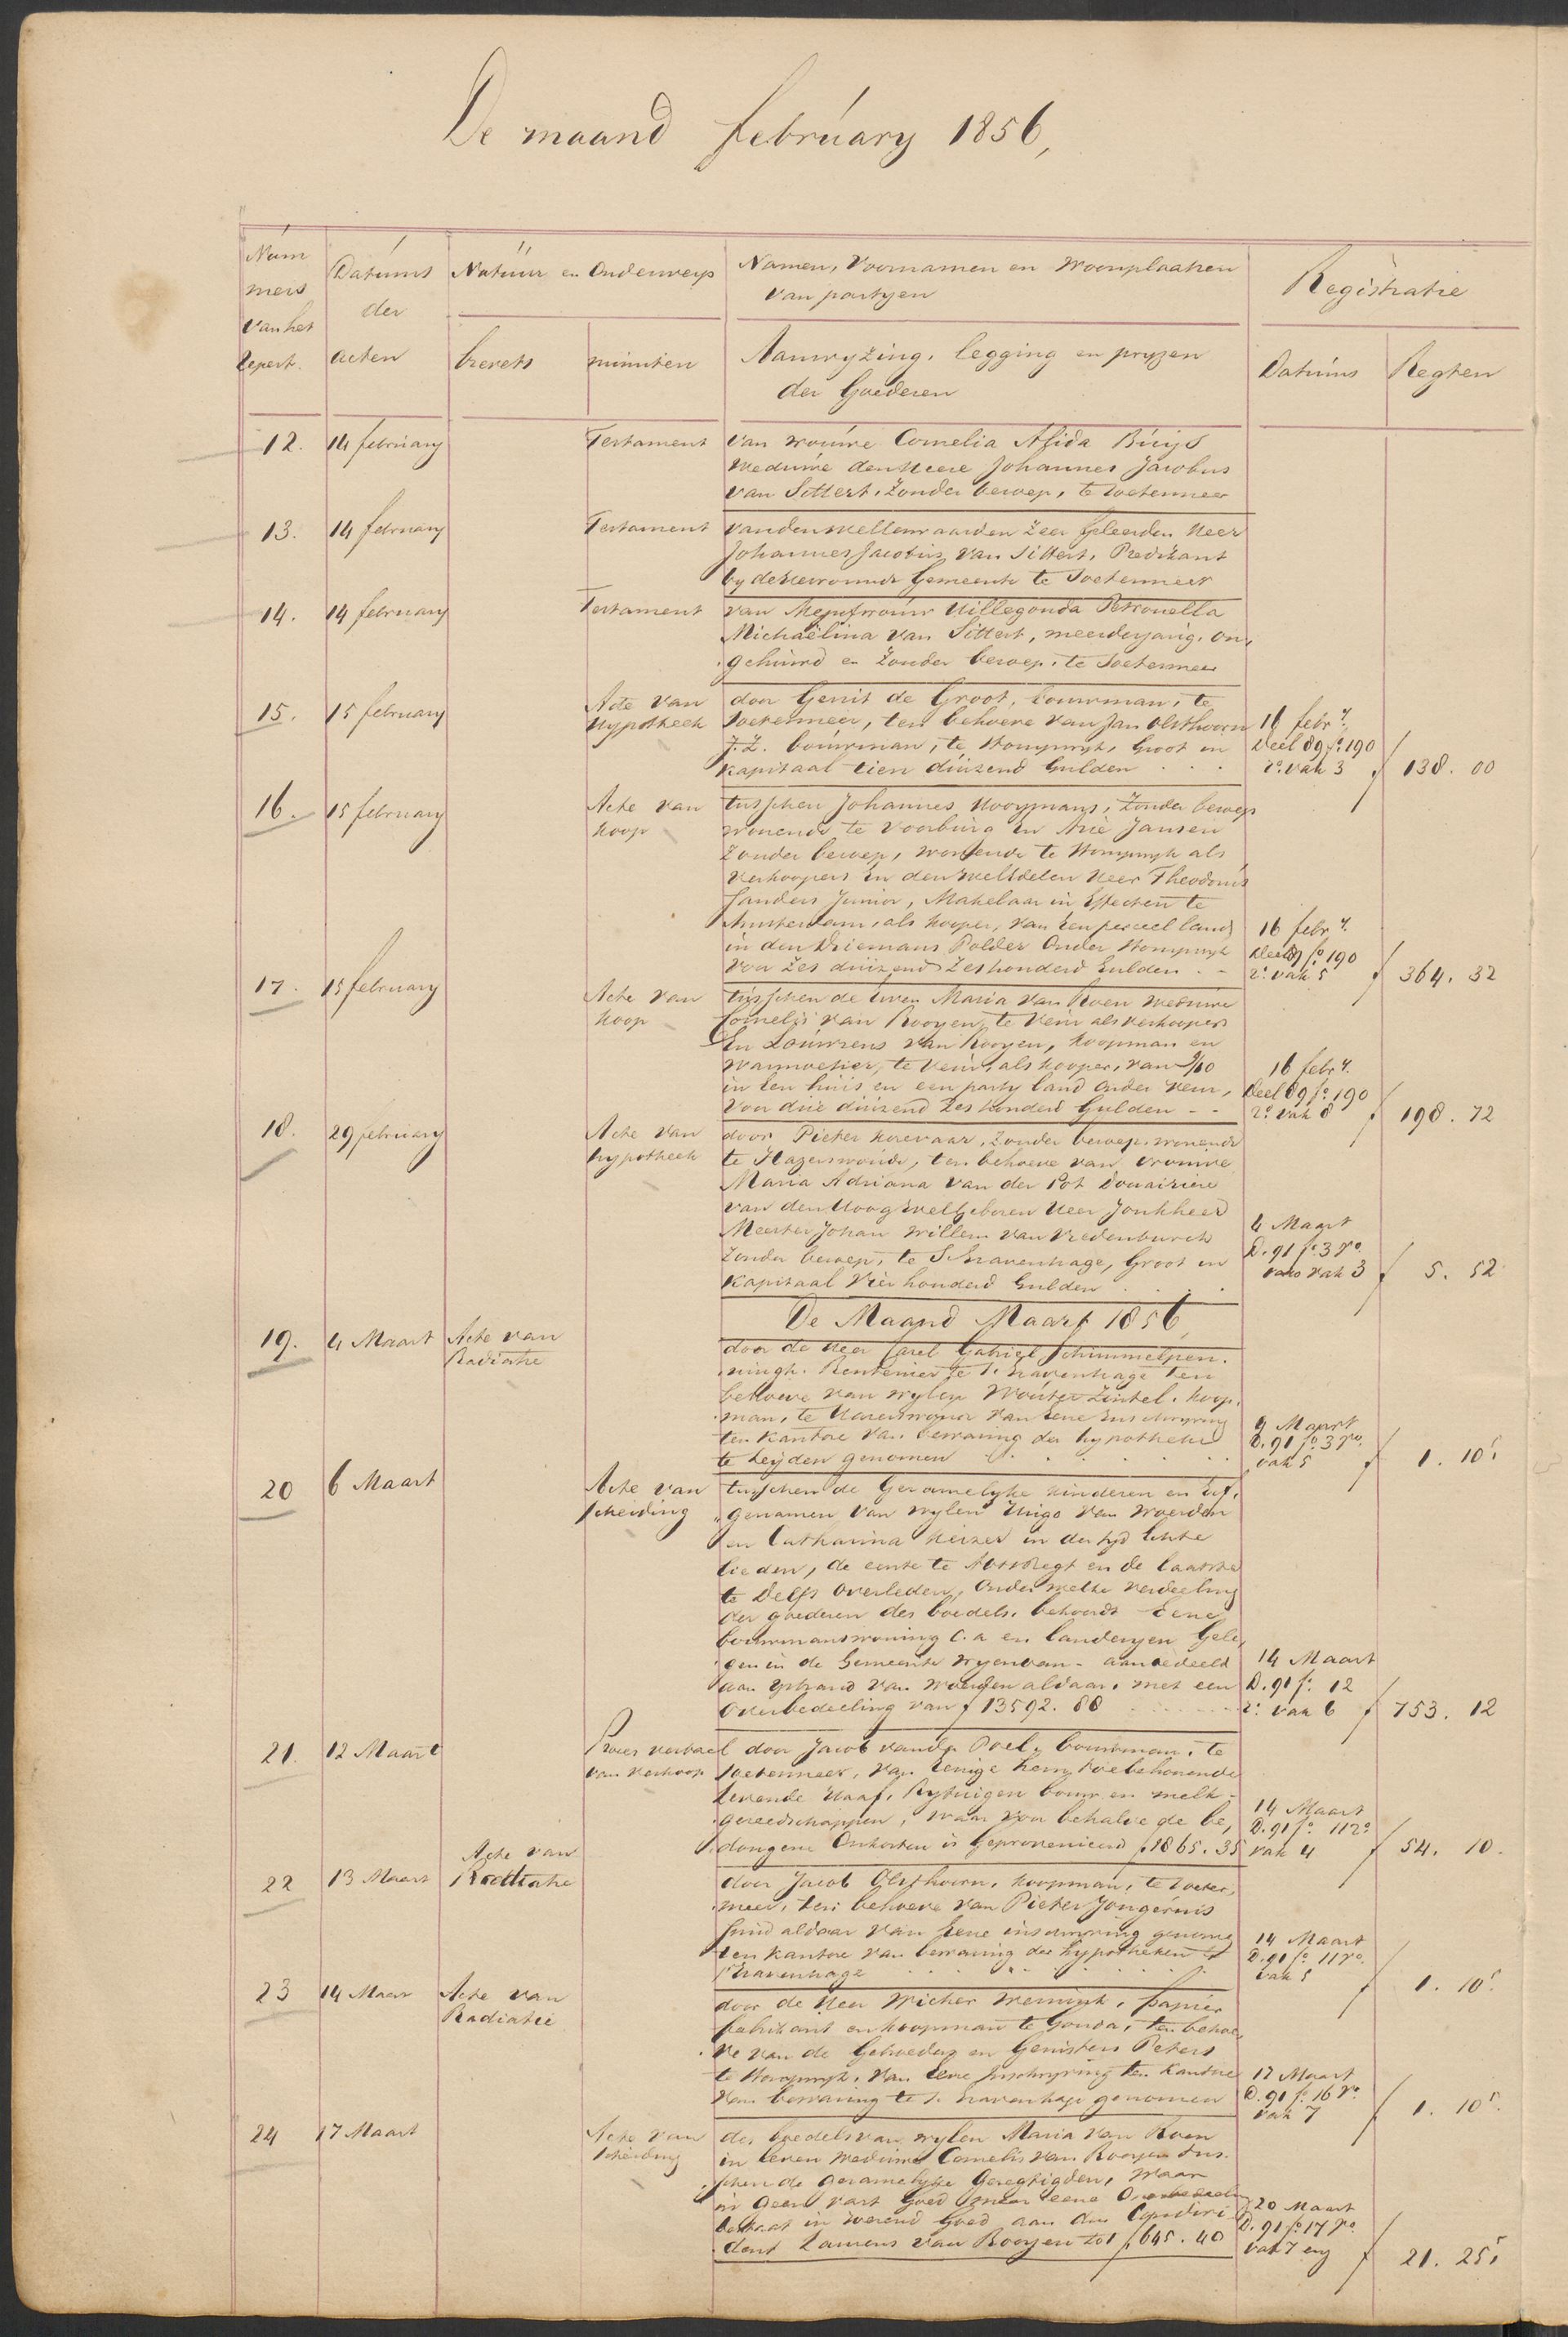 De maand february 1856,
Num
mers
van het
Repert.
Datums
der
acten
Natuur en Onderwerp
brevets
minuten
Namen, Voornamen en Woonplaatsen
van partyen
Aanwyzing, legging en pryzen
der Goederen
Registratie
Datums
Regten
12. 14 february Testament van vrouwe Cornelia Alida Buijs
Weduwe den Heere Johannes Jacobus
van Sittert, zonder beroep, te Soetermeer
13. 14 february Testament van den Weleerwaarden Zeer Geleerden Heer
Johannes Jacobus van Sittert, Predikant
by de Hervormde Gemeente te Soetermeer
14. 14 february Testament van Mejufvrouw Hillegonda Petronella
Michaëlina van Sittert, meerderjarig, on,
gehuwd en zonder beroep, te Soetermeer
15. 15 february Acte van door Gerrit de Groot, bouwman, te
Hypotheek Soetermeer, ten behoeve van Jan Olsthoorn 16 febry.
J.Z. bouwman, te Stompwyk, Groot in Deel 89 fo. 190
kapitaal tien duizend Gulden . . . ro. vak 3 f 138. 00
16. 15 february Acte van tusschen Johannes Kooymans, zonder beroep
koop wonende te Voorburg en Arie Jansen
zonder beroep, wonende te Stompwyk als
Verkoopers En den WelEdelen Heer Theodorus
Sanders Junior, Makelaar in Effecten te
Amsterdam, als kooper, van Een perceel land 16 febry.
in den Driemans Polder Onder Stompwyk Deel 89 fo. 190
voor Zes duizend Zeshonderd Gulden . - ro. vak 5 f 364. 32
17. 15 february Acte van tusschen de Erven Maria van Roen weduwe
koop Cornelis van Rooyen, te Veur als verkoopers
En Louwrens van Rooyen, koopman en
te Veur, als kooper, van 9/10 16 febry.
in Een huis en een party land onder Veur, Deel 89 fo. 190
Voor drie duizend Zes honderd Gulden - - ro. vak 8 f 198. 72
18. 29 february Acte van door Pieter Hoevaar, zonder beroep, wonende
hypotheek te Hazerswoude, ten behoeve van vrouwe
Maria Adriana van der Pot Douairiere
van den HoogWelGeboren Heer Jonkheer
Meester Johan Willem van Vredenburch 4 Maart
zonder beroep, te S Gravenhage, Groot in D. 91 fo. 3 ro.
kapitaal Vier honderd Gulden . . . . vak 3 f 5. 52
De Maand Maart 1856,
19. 4 Maart Acte van door de Heer Carel Gabriel Schimmelpen,
Radiatie ningh. Rentenier te S. Gravenhage ten
behoeve van wylen Wouter Zintel, koop,
man, te Hazerswoude van Eene Inschryving 9 Maart
ten kantore van bewaring der hypotheken D. 91 fo. 3 ro.
te Leyden genomen . . . . . . vak 5 f 1. 10 5
20 6 Maart Acte van tusschen de Gezamelyke kinderen en Erf,
scheiding genamen van wylen Huigo van Woerden
en Catharina Keizer in der tyd Echte
lieden, de eerste te en de laatste
te Delft overleden, Onder welke verdeeling
der goederen des boedels, behoords Eene
bouwmanswoning c.a en landeryen Gele,
gen in de Gemeente Wyenvan- aanbedeeld 14 Maart
aan Ysbrand van Woerden aldaar, met een D. 91 fo. 12
Overbedeeling van f 13592. 88 ro. vak 6 f 753. 12
21. 12 Maart Proces verbael door Jacob van der Poel, bouwman, te
van verkoop Soetermeer, van Eenige hem toebehoorende
Levende Haaf, Rytuigen bouw en melk-
gereedschappen, waar voor behalve de be, 14 Maart
D. 91 fo. 11 ro
dongene Onkosten is Geprovenieerd f 1865. 35 vak 4 f 54. 10.
22 13 Maart Acte van Radiatie door Jacob Olsthoorn, koopman, te Soeter,
meer, ten behoeve van Pieter Jongeneis
aldaar van Eene inschryving genomen 14 Maart
ten kantore van bewaring der hypotheken te D. 91 fo. 11 ro.
s Gravenhage . . . . . . vak 5 f 1. 10 5
23 14 Maart Acte van Radiatie door de Heer Wicher Wernink, papier
fabrikant en koopman te Gouda, ten behoe,
ve van de Gebroeders en Gezusters Peters
te Stompwyk, van Eene Inschryving ten kantore 17 Maart
van bewaring te S. Gravenhage genomen D. 91 fo. 16 ro.
vak 7 f 1. 10 5
24 17 Maart Acte van des boedels van wylen Maria van Roen
scheiding in leven weduwe Cornelis van Rooyen tus,
schen de gezamelyke Geregtigden, waar
in geen vast goed maar eene Overbedeeling 20 Maart
bestaat in roerend Goed aan den D. 91 fo. 17 ro.
Laurens van Rooyen tot f 645. 40 vak 7 env f 21. 25 5